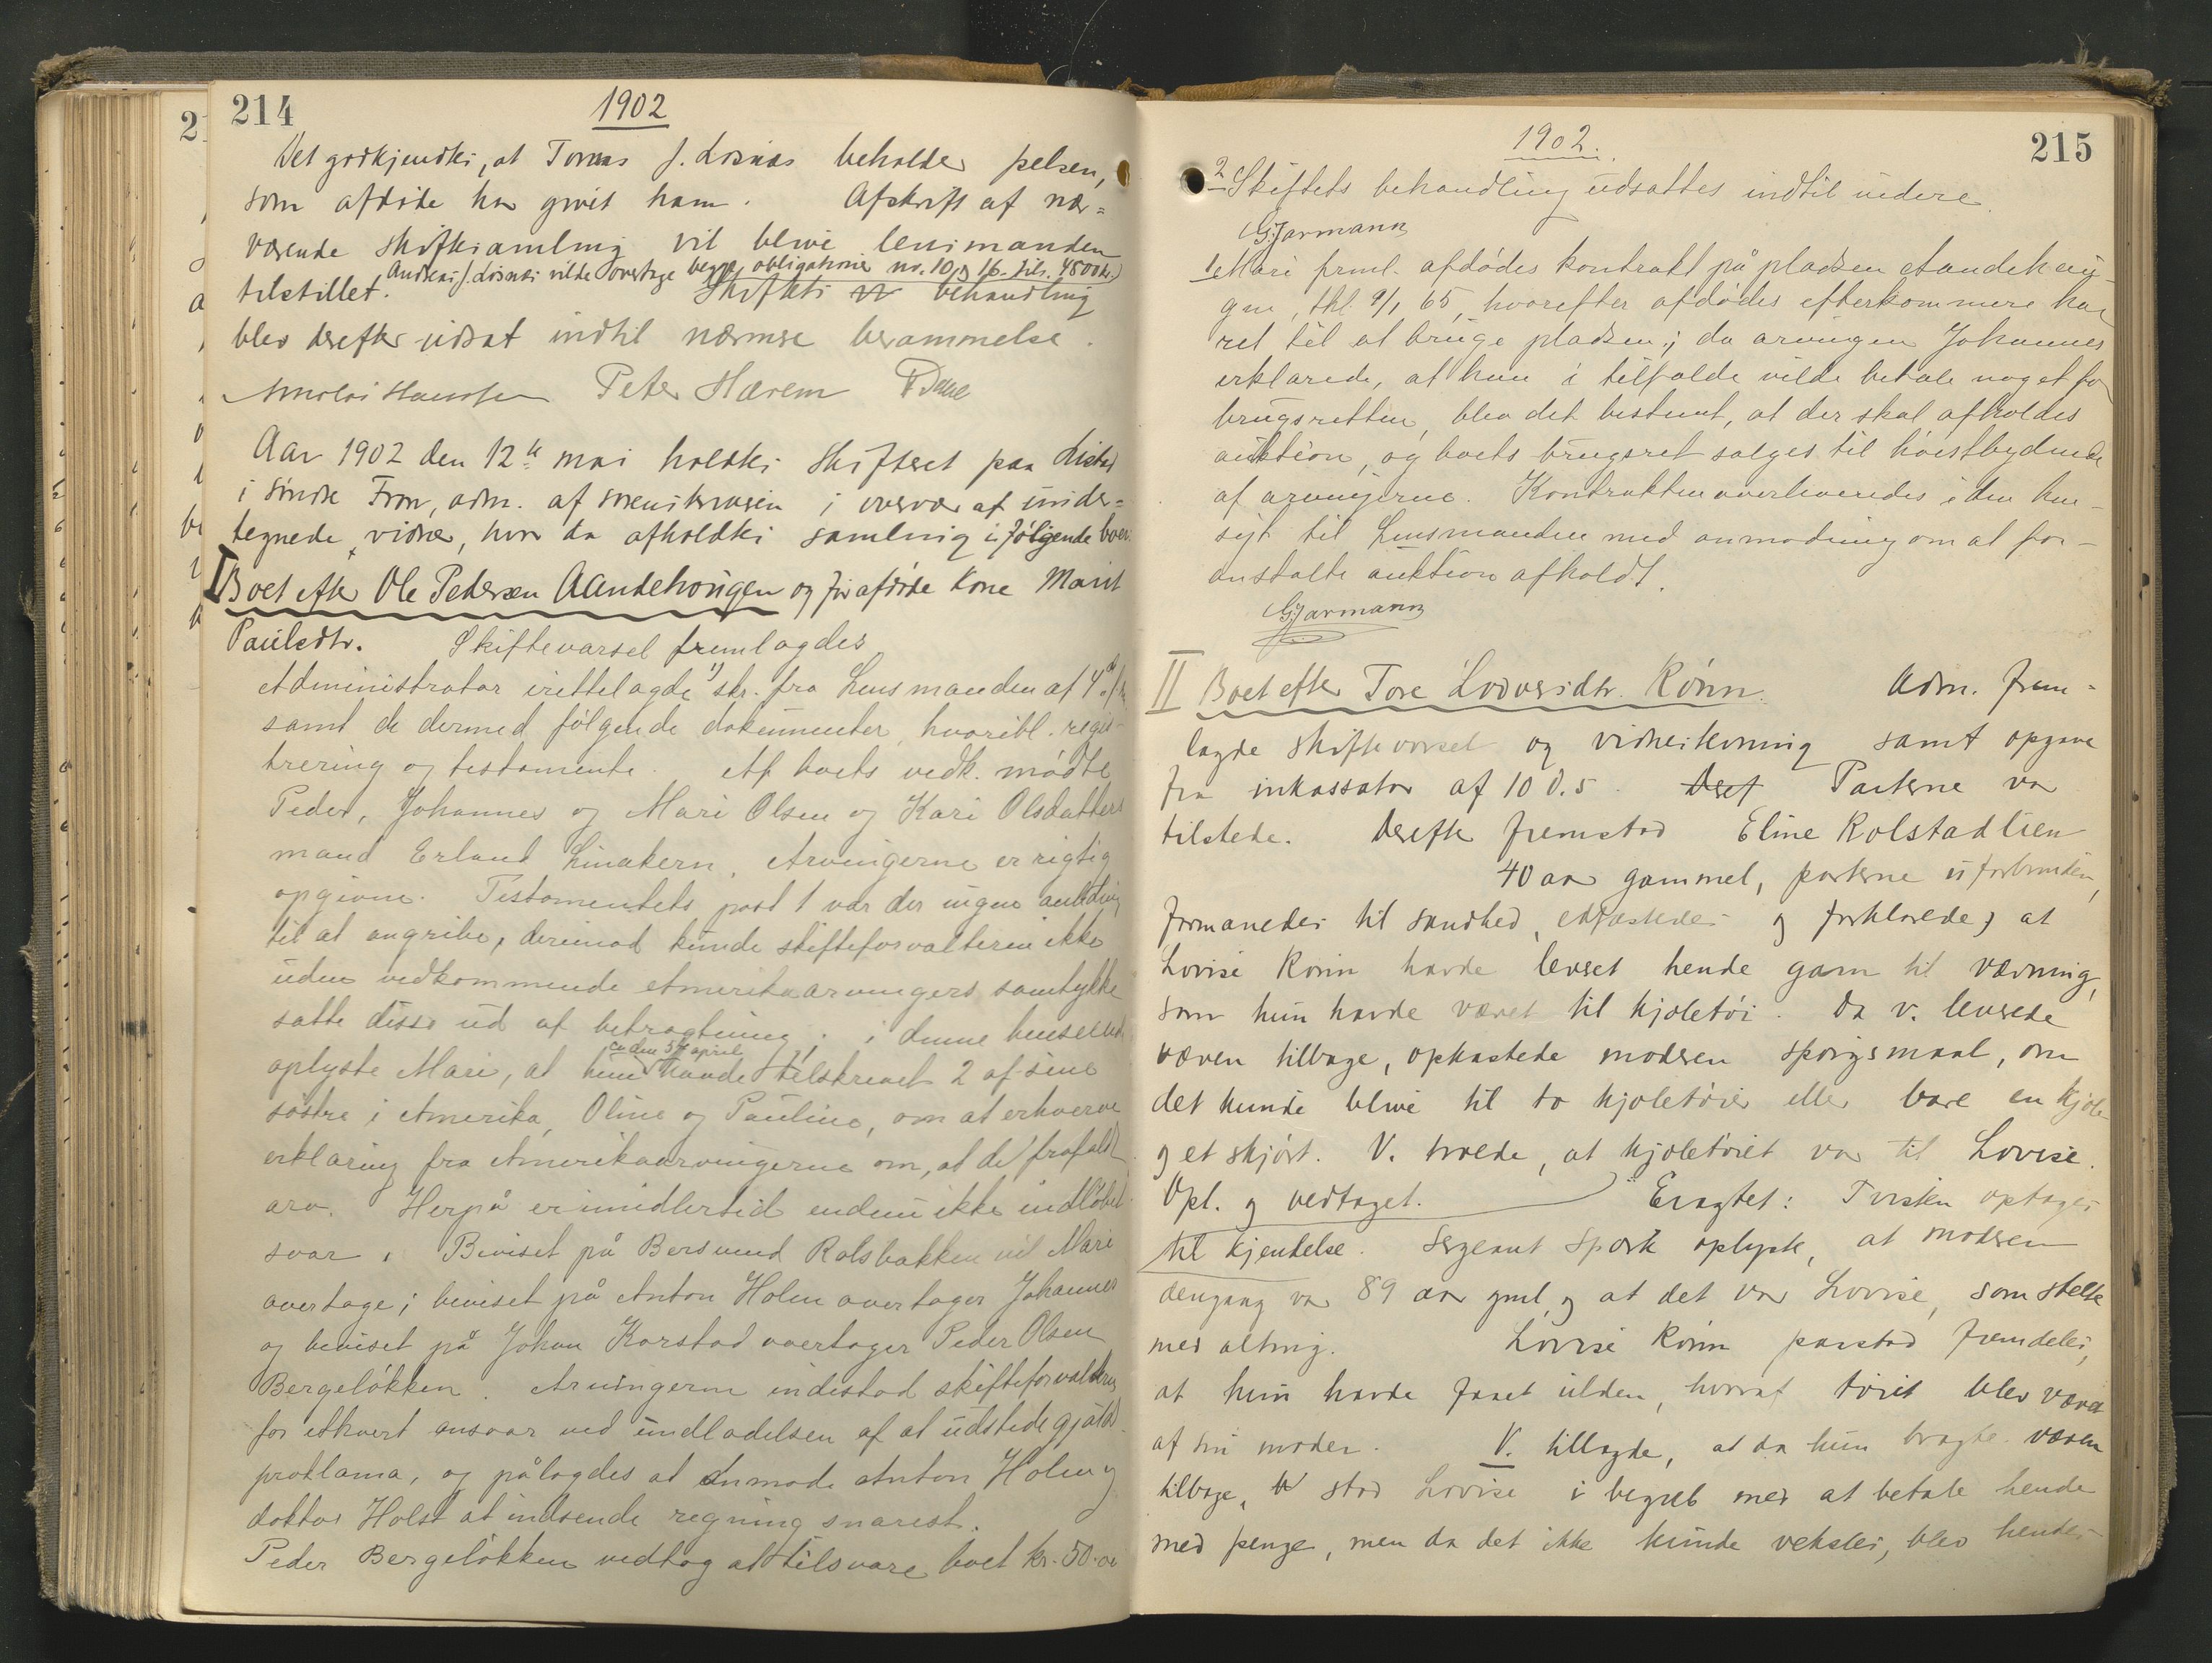 214
1902
Det godkjendtes, at Tomas J. Losnæs beholder pelsen,
som afdøde har givet ham. Afskrift af nær=
værende skiftesamling vil blive lensmanden
Andreas J. Losnæs vilde overtage begge obligationer no. 10 og 16. tils. 4800 kr.)
tilstillet. Skiftets behandling
blev derefter udsat indtil nærmere berammelse.
Peter Hærem
Aar 1902 den 12te mai holdtes skifteret paa Listad
i søndre Fron, adm. af sorenskriveren i overvær af under=
tegnede vidner, hvor da afholdtes samling i følgende boer:
I Boet efter Ole Pedersen Aandehougen og før afdøde kone Marit
Paulsdtr. Skiftevarsel fremlagdes
Administrator irettelagde 1) skr. fra Lensmanden af 4de
samt de dermed følgende dokumenter, hvoribl. regis-
trering og testamente. Af boets vedk. mødte
Peder, Johannes og Mari Olsen og Kari Olsdatters
mand Erland Linakern. Arvingerne er rigtig
opgivne. Testamentets post 1 var der ingen anledning
til at angribe, derimod kunde skifteforvalteren ikke
uden vedkommende Amerikaarvingers samtykke
sætte disse ud af betragtning; i denne henseende
ca den 5te april
oplyste Mari, at hun havde tilskrevet 2 af sine
søstre i Amerika, Oline og Pauline, om at erhverve
erklæring fra Amerikaarvingerne om, at de frafaldt
arv. Herpå er imidlertid endnu ikke indløbet
svar. Beviset på Bersvend Rolsbakken vil Mari
overtage; beviset på Anton Holen overtager Johannes
og beviset på Johan Korstad overtager Peder Olsen
Bergeløkken. Arvingerne indestod skifteforvalteren
for ethvert ansvar ved undladelsen af at udstede gjælds
proklama, og pålagdes at anmode Anton Holen og
doktor Holst at indsende regning snarest.
Peder Bergeløkken vedtog at tilsvare boet kr. 50.00
215
1902.
2 Skiftets behandling udsattes indtil videre.
G. Jarmann
1 Mari freml. afdødes kontrakt på pladsen Aandehau-
gen, thl. 9/1 65, hvorefter afdødes efterkommere har
ret til at bruge pladsen; da arvingen Johannes
erklærede, at han i tilfælde vilde betale noget for
brugsretten, blev det bestemt, at der skal afholdes
auktion, og boets brugsret sælges til høistbydende
af arvingerne. Kontrakten overleveredes i den hen-
sigt til Lensmanden med anmodning om at for-
anstalte auktion afholdt.
G. Jarmann
II Boet efter Tore Lodversdtr. Rønn. Adm. frem=
lagde skiftevarsel og vidnestevning samt opgave
fra inkassator af 10 d.s. Deref Parterne var
tilstede. Derefter fremstod Eline Kolstadlien
40 aar gammel, parterne uforbunden,
formanedes til sandhed, edfæstedes og forklarede, at
Lovise Rønn havde leveret hende garn til vævning,
som hun havde vævet til kjoletøi. Da v. leverede
væven tilbage, opkastede moderen spørgsmaal, om
det kunde blive til to kjoletøier eller bare en kjole
og et skjørt. V. troede, at kjoletøiet var til Lovise.
Opl. og vedtaget. Eragtet: Tvisten optages
til kjendelse. Sergeant Spørk oplyste, at moderen
dengang var 89 aar gml, og at det var Lovise, som stelte
med alting. Lovise Rønn paastod fremdeles,
at hun havde faaet ulden, hvoraf tøiet blev vævet
af sin moder. V. tillagde, at da hun bragte væven
tilbage, stod Lovise i begreb med at betale hende
med penge, men da det ikke kunde veksles, blev hendes